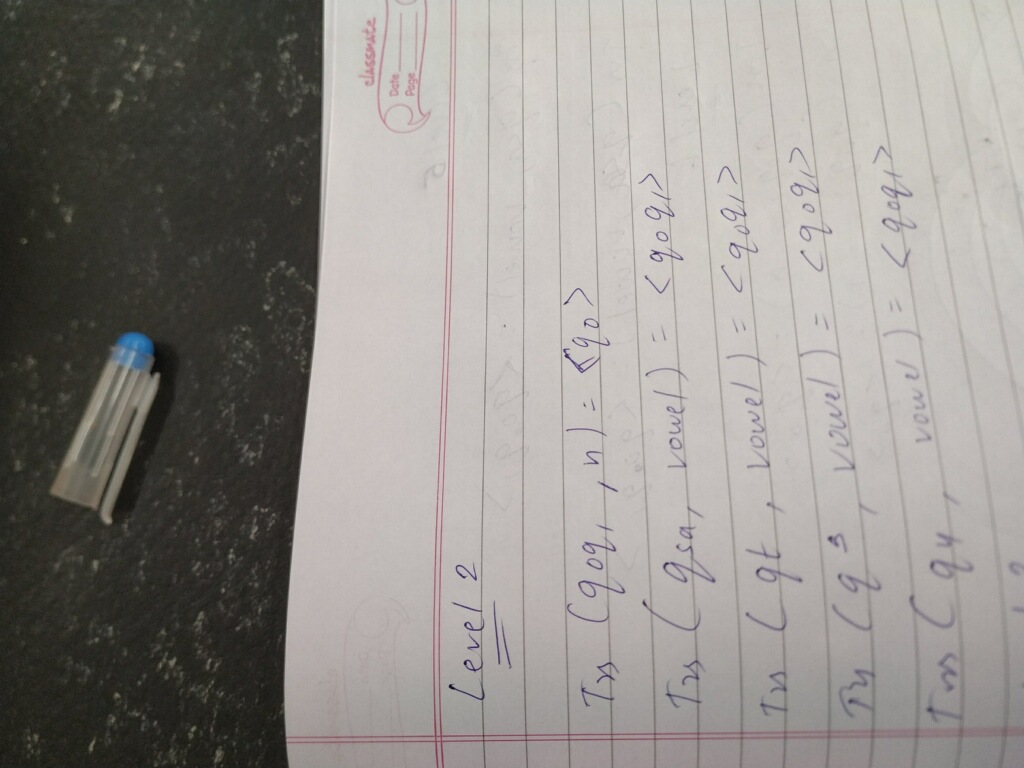 classmate
Date
Page
Level 2
Trs (q0q1, n) = <q0>
Trs (qsa, vowel) = <q0q1>
Trs (qt, vowel) = <q0q1>
Trs (q3, vowel) = <q0q1>
Trs (q4, vowel) = <q0q1>